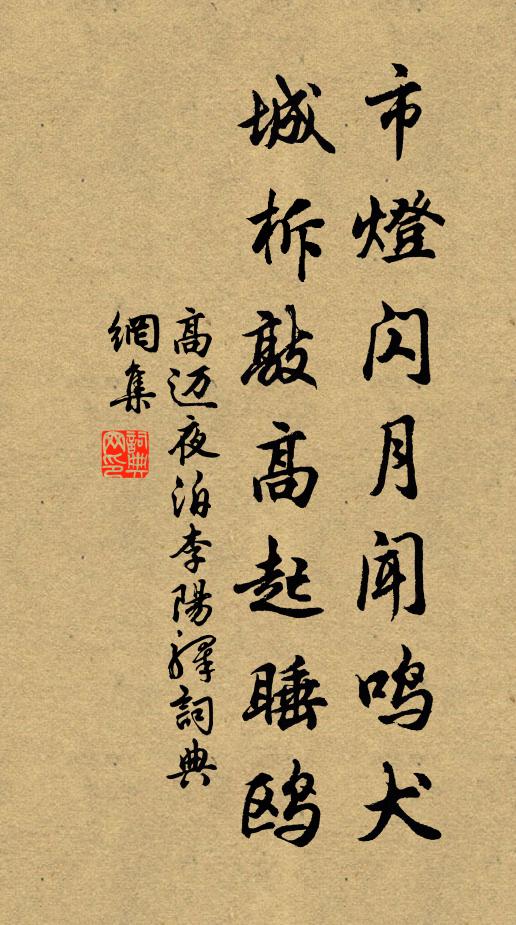 市燈闪月闻鸣犬
城柝敲高起睡鸥
高迈夜泊李陽驿詞典
網集
詞典
网印